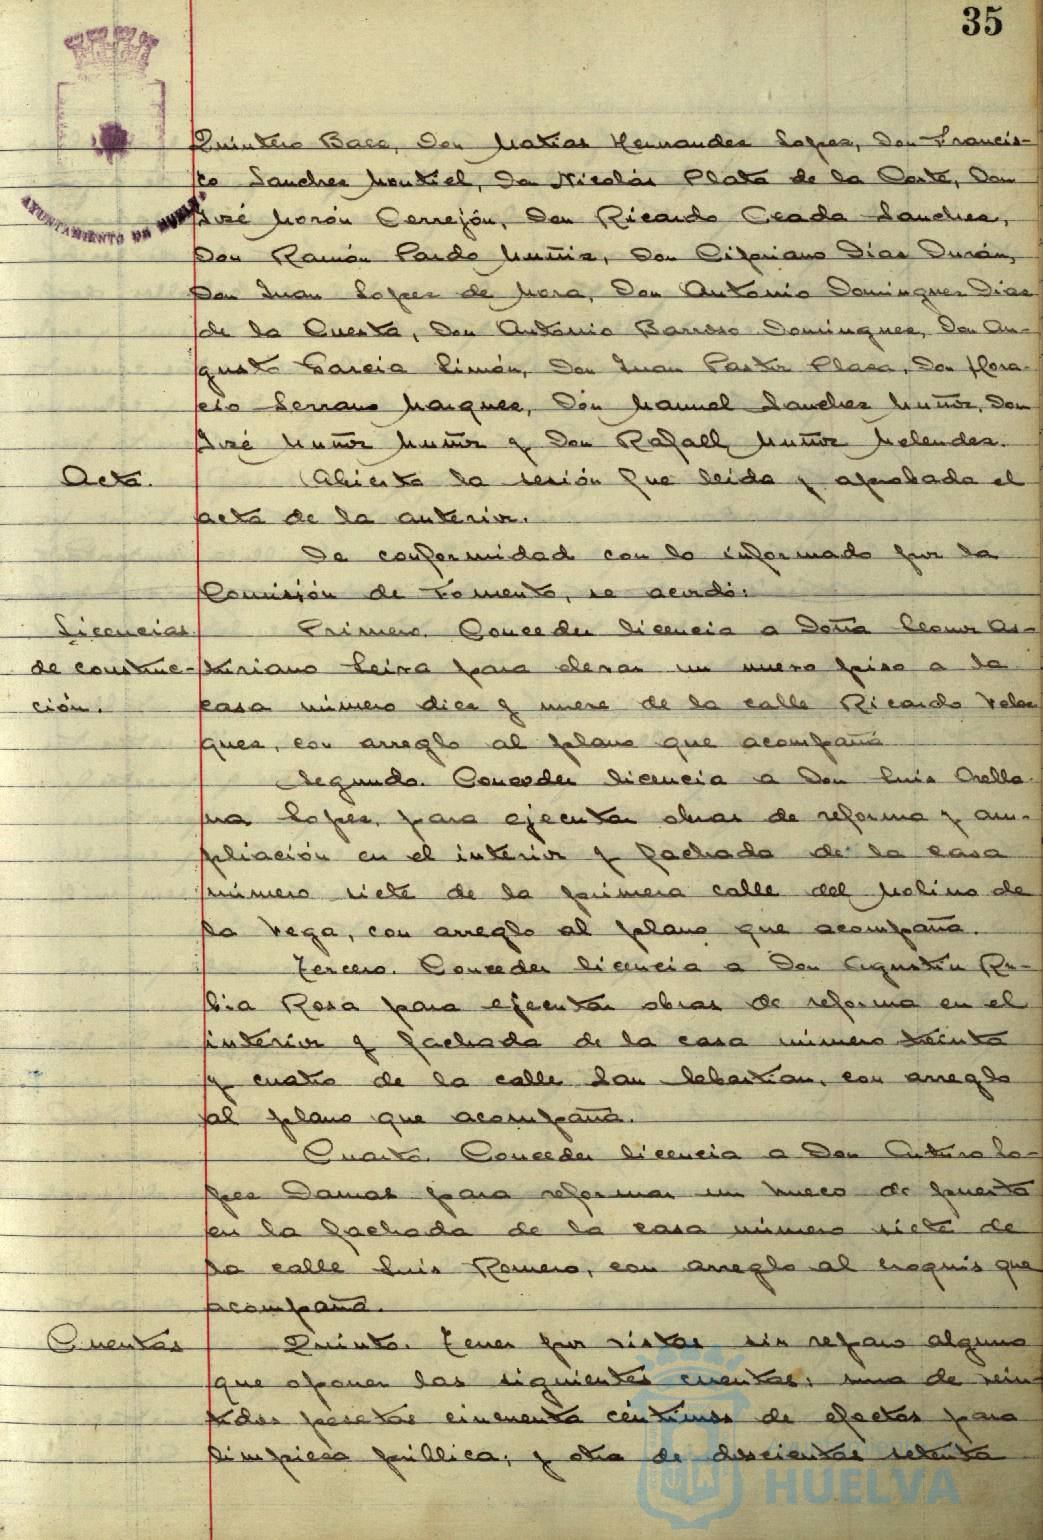 35
AYUNTAMIENTO DE HUELVA
Quintero Baez, Don Matias Hernandez Lopez, Don Francis-
co Sanchez Montiel, Don Nicolás Plata de la Corte, Don
José Morón Cerrejón, Don Ricardo Ceada Sanchez,
Don Ramón Pardo Muñiz, Don Cipriano Dias Durán,
Don Juan Lopez de Mora, Don Antonio Dominguez Dias
de la Cuesta, Don Antonio Barroso Dominguez, Don Au-
gusto Garcia Simón, Don Juan Pastor Plaza, Don Hora-
cio Serrano Marquez, Don Manuel Sanchez Muñoz, Don
José Muñoz Muñoz y Don Rafael Muñoz Melendez.
Acta.
Abierta la sesión fue leida y aprobada el
acta de la anterior.
De conformidad con lo informado por la
Comisión de Fomento, se acordó:
Licencias
de construc-
ción.
Primero. Conceder licencia a Doña Leonor As-
turiano Leiva para elevar un nuevo piso a la
casa número diez y nueve de la calle Ricardo Velaz
quez, con arreglo al plano que acompaña
Segundo. Conceder licencia a Don Luis Orella-
na Lopez, para ejecutar obras de reforma y am-
pliación en el interior y fachada de la casa
número siete de la primera calle del Molino de
la Vega, con arreglo al plano que acompaña.
Tercero. Conceder licencia a Don Agustin Ru-
bia Rosa para ejecutar obras de reforma en el
interior y fachada de la casa número treinta
y cuatro de la calle San Sebastian, con arreglo
al plano que acompaña.
Cuarto. Conceder licencia a Don Arturo Lo-
pez Damas para reformar un hueco de puerta
en la fachada de la casa número siete de
la calle Luis Romero, con arreglo al croquis que
acompaña.
Cuentas
Quinto. Tener por vistas sin reparo alguno
que oponer las siguientes cuentas: una de vein-
tidos pesetas cincuenta céntimos de efectos para
limpieza pública; y otra de doscientas setenta
HUELVA